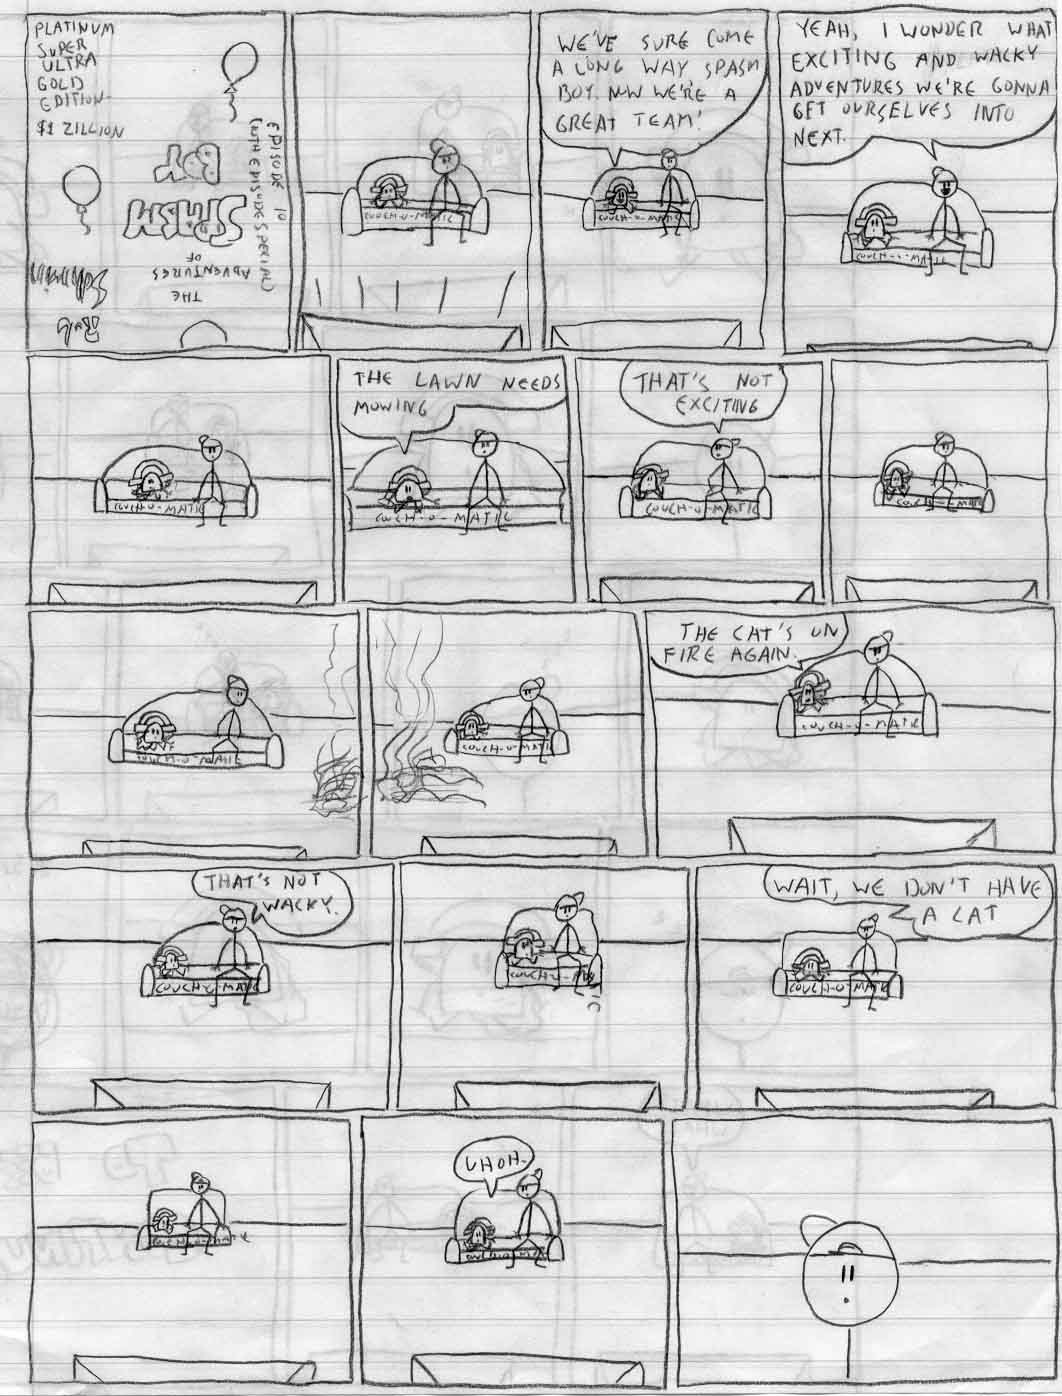 PLATINUM
SUPER
ULTRA
GOLD
EDITION
$1 ZILLION
EPISODE 10
(10TH EPISODE SPECIAL)
THE
ADVENTURES
OF
SPASM
BOY
COUCH-O-MATIC
WE'VE SURE COME
A LONG WAY SPASM
BOY. NOW WE'RE A
GREAT TEAM!
COUCH-O-MATIC
YEAH, I WONDER WHAT
EXCITING AND WACKY
ADVENTURES WE'RE GONNA
GET OURSELVES INTO
NEXT.
COUCH-O-MATIC
COUCH-O-MATIC
THE LAWN NEEDS
MOWING
COUCH-O-MATIC
THAT'S NOT
EXCITING
COUCH-O-MATIC
COUCH-O-MATIC
COUCH-O-MATIC
COUCH-O-MATIC
THE CAT'S ON
FIRE AGAIN.
COUCH-O-MATIC
THAT'S NOT
WACKY.
COUCH-O-MATIC
COUCH-O-MATIC
WAIT, WE DON'T HAVE
A CAT
COUCH-O-MATIC
COUCH-O-MATIC
UHOH.
COUCH-O-MATIC